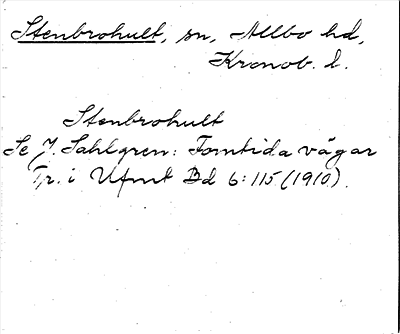 Stenbrohult, sn, Allbo hd,
Kronob. l.
Stenbrohult
Se J. Sahlgren: Forntida vägar
Tr. i Ufmt Bd 6:115 (1910).